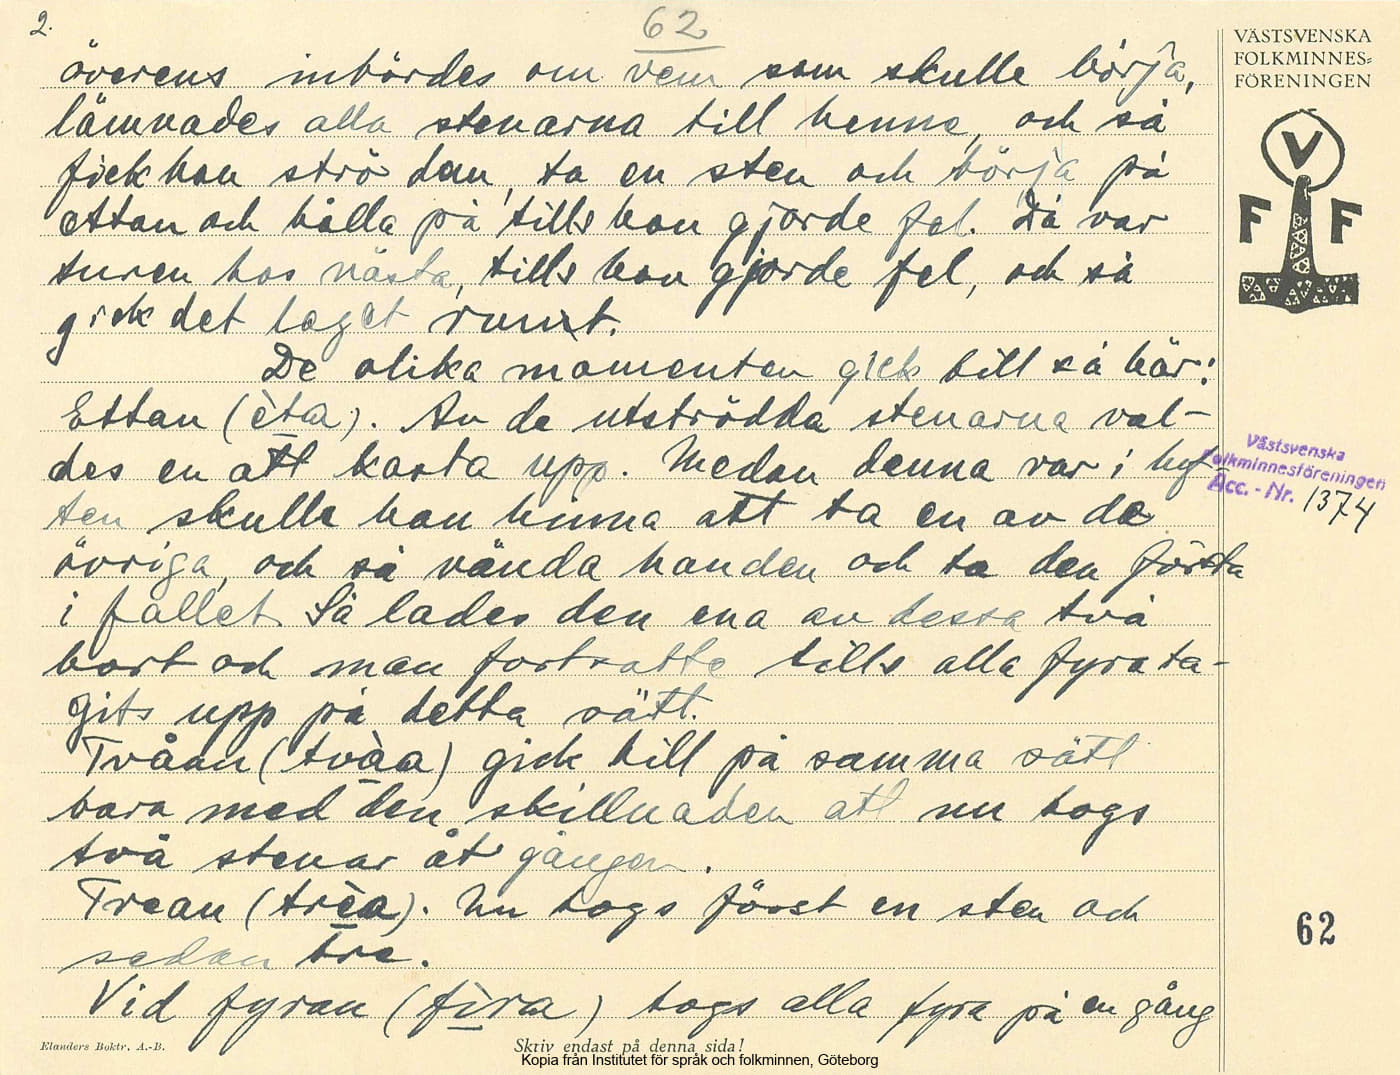 2.
62
överens inbördes om vem som skulle börja,
lämnades alla stenarna till henne, och så
fick hon strö dem, ta en sten och börja på
ettan och hålla på tills hon gjorde fel. Då var
turen hos nästa, tills hon gjorde fel, och så
gick det laget runt.
De olika momenten gick till så här:
Ettan (èta). Av de utströdda stenarna val-
des en att kasta upp. Medan denna var i luf-
ten skulle han hinna att ta en av de
övriga, och så vända handen och ta den första
i fallet. Så lades den ena av dessa två
bort och man fortsatte tills alla fyra ta-
gits upp på detta sätt.
Tvåan (tvàa) gick till på samma sätt
bara med den skillnaden att nu togs
två stenar åt gången.
Trean (trèa). Nu togs först en sten och
sedan tre.
Vid fyran (fìra) togs alla fyra på en gång
VÄSTSVENSKA
FOLKMINNES=
FÖRENINGEN
V
F F
Västsvenska
Folkminnesföreningen
Acc. - Nr. 1374
62
Elanders Boktr. A.-B.
Skriv endast på denna sida!
Kopia från Institutet för språk och folkminnen, Göteborg